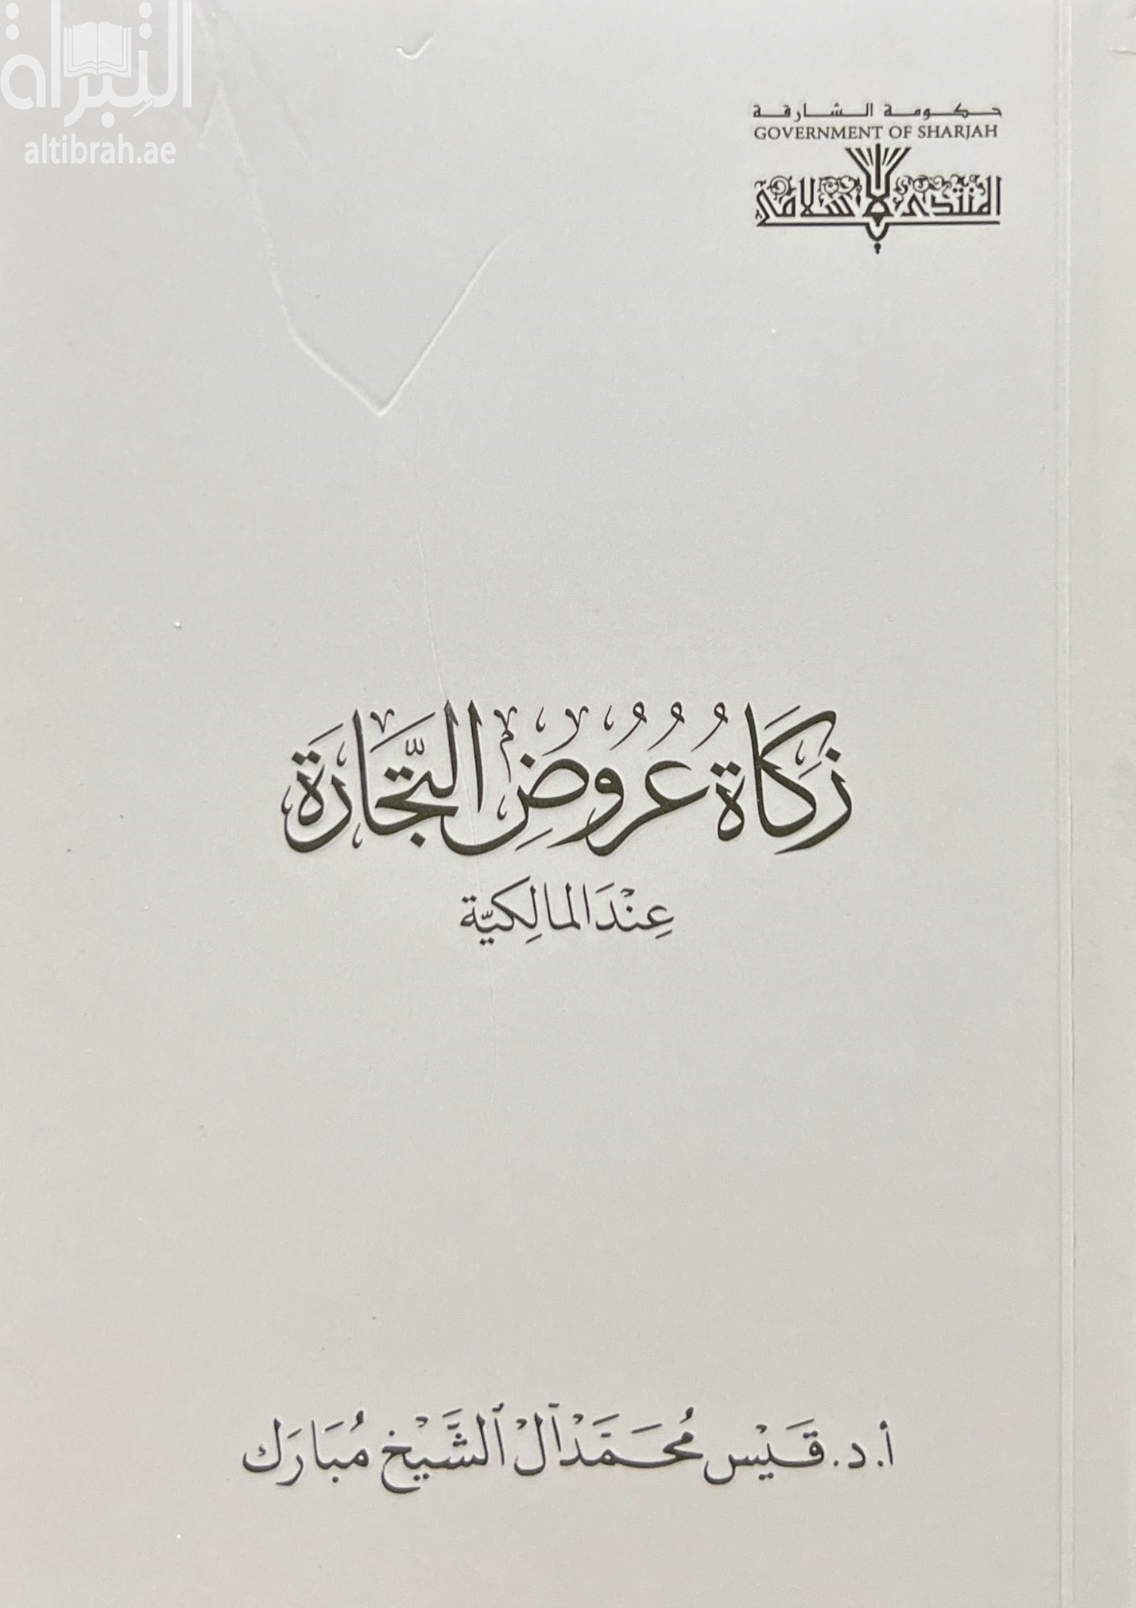 التبراة
altibrah.ae
حكومة الشارقة
GOVERNMENT OF SHARJAH
المنتدى الإسلامي
زَكَاةُ عُرُوضِ التِّجَارَةِ
عِنْدَ المَالِكيَّة
أ. د. قَيْس مُحَمَّد آل الشَّيْخ مُبَارَك